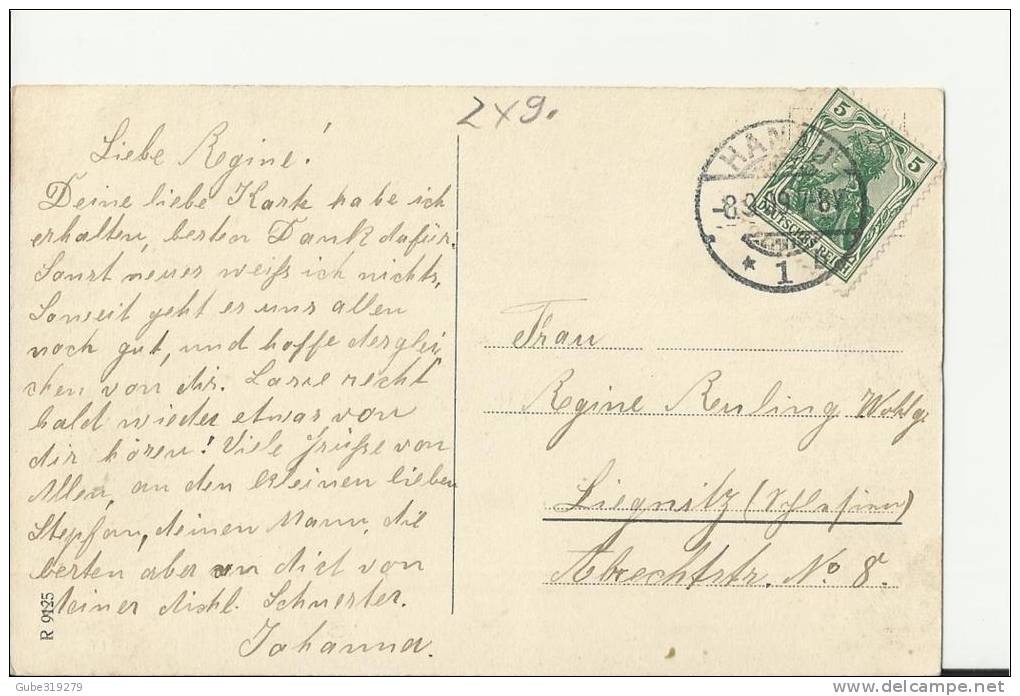 2 x 9.
Liebe Regine!
Deine liebe Karte habe ich
erhalten, besten Dank dafür.
Sonst neues weiß ich nichts,
Soweit geht es uns allen
noch gut, und hoffe derglei
chen von dir. Lasse recht
bald wieder etwas von
dir hören! Viele Grüße von
Allen, an den kleinen lieben
Stepfan, deinen Mann, die
besten aber an dich von
deiner Schwester.
Johanna.
R 9125
HANAU
-8.9.09. 7-8V
* 1
5
5
DEUTSCHES REICH
Frau
Regine Reuling Wohlg.
Liegnitz (Schlesien)
Albrechtstr. No 8.
Gube319279
delcampe.net